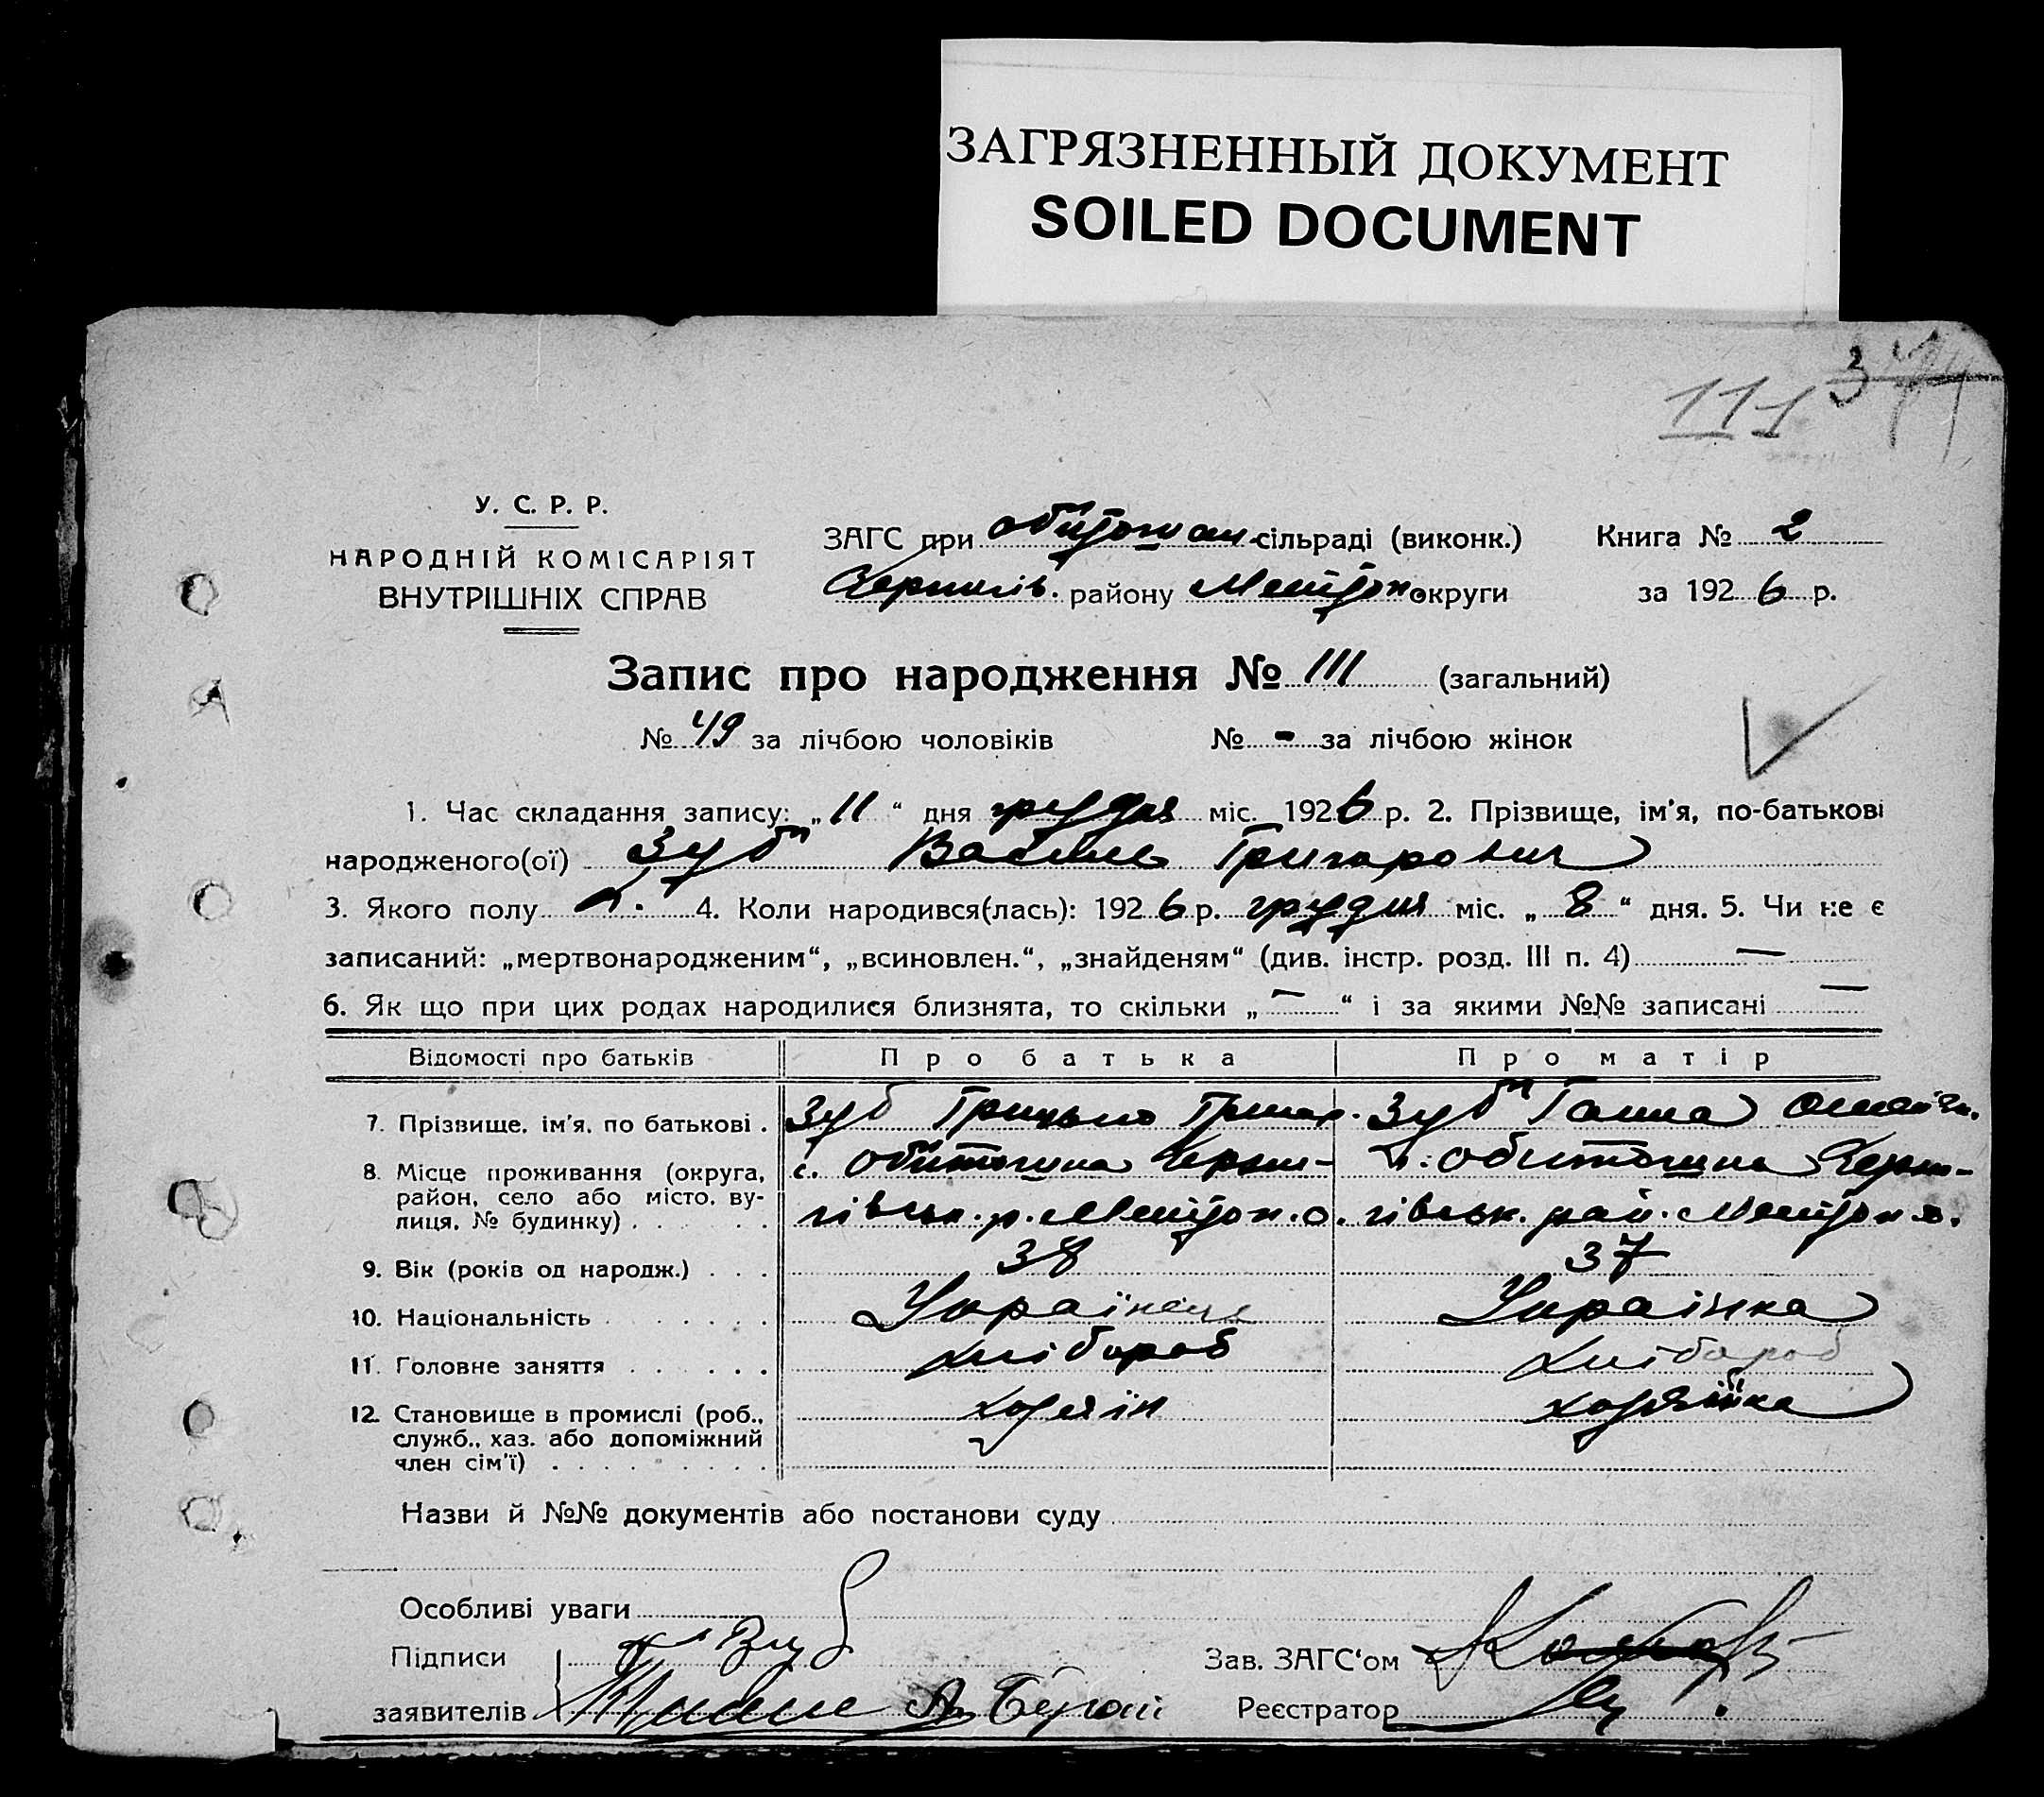 ЗАГРЯЗНЕННЫЙ ДОКУМЕНТ
SOILED DOCUMENT
111
У. С. Р. Р.
НАРОДНІЙ КОМІСАРІЯТ
ВНУТРІШНІХ СПРАВ
ЗАГС при сільраді (виконк.) Книга № 2
Чернигів. району Меліtop. округи за 1926 р.
Запис про народження № 111 (загальний)
№ 49 за лічбою чоловіків № - за лічбою жінок
1. Час складання запису: „11“ дня грудня міс. 1926 р. 2. Прізвище, ім'я, по-батькові
народженого(ої) Зуб Василь Григорович
3. Якого полу ч. 4. Коли народився(лась): 1926 р. грудня міс. „8“ дня. 5. Чи не є
записаний: „мертвонародженим“, „всиновлен.“, „знайденям“ (див. інстр. розд. III п. 4) —
6. Як що при цих родах народилися близнята, то скільки „—“ і за якими №№ записані —
Відомості про батьків Про батька Про матір
7. Прізвище, ім'я, по батькові . Зуб Грицько Григор. Зуб Ганна
8. Місце проживання (округа, с. Обиточна Черни- с. Обиточна Черни-
район, село або місто, ву-
лиця, № будинку) . . . . гівськ. р. Мелітоп. о. гівськ. рай. Мелітоп. о.
9. Вік (років од народж.) . . . 38 37
10. Національність . . . . . . Українець Українка
11. Головне заняття . . . . . . хлібороб хлібороб
12. Становище в промислі (роб., хозяїн хозяйка
служб., хаз. або допоміжний
член сім'ї) . . . . . . . . .
Назви й №№ документів або постанови суду
Особливі уваги
Підписи Зуб Зав. ЗАГС'ом
заявителів Реєстратор